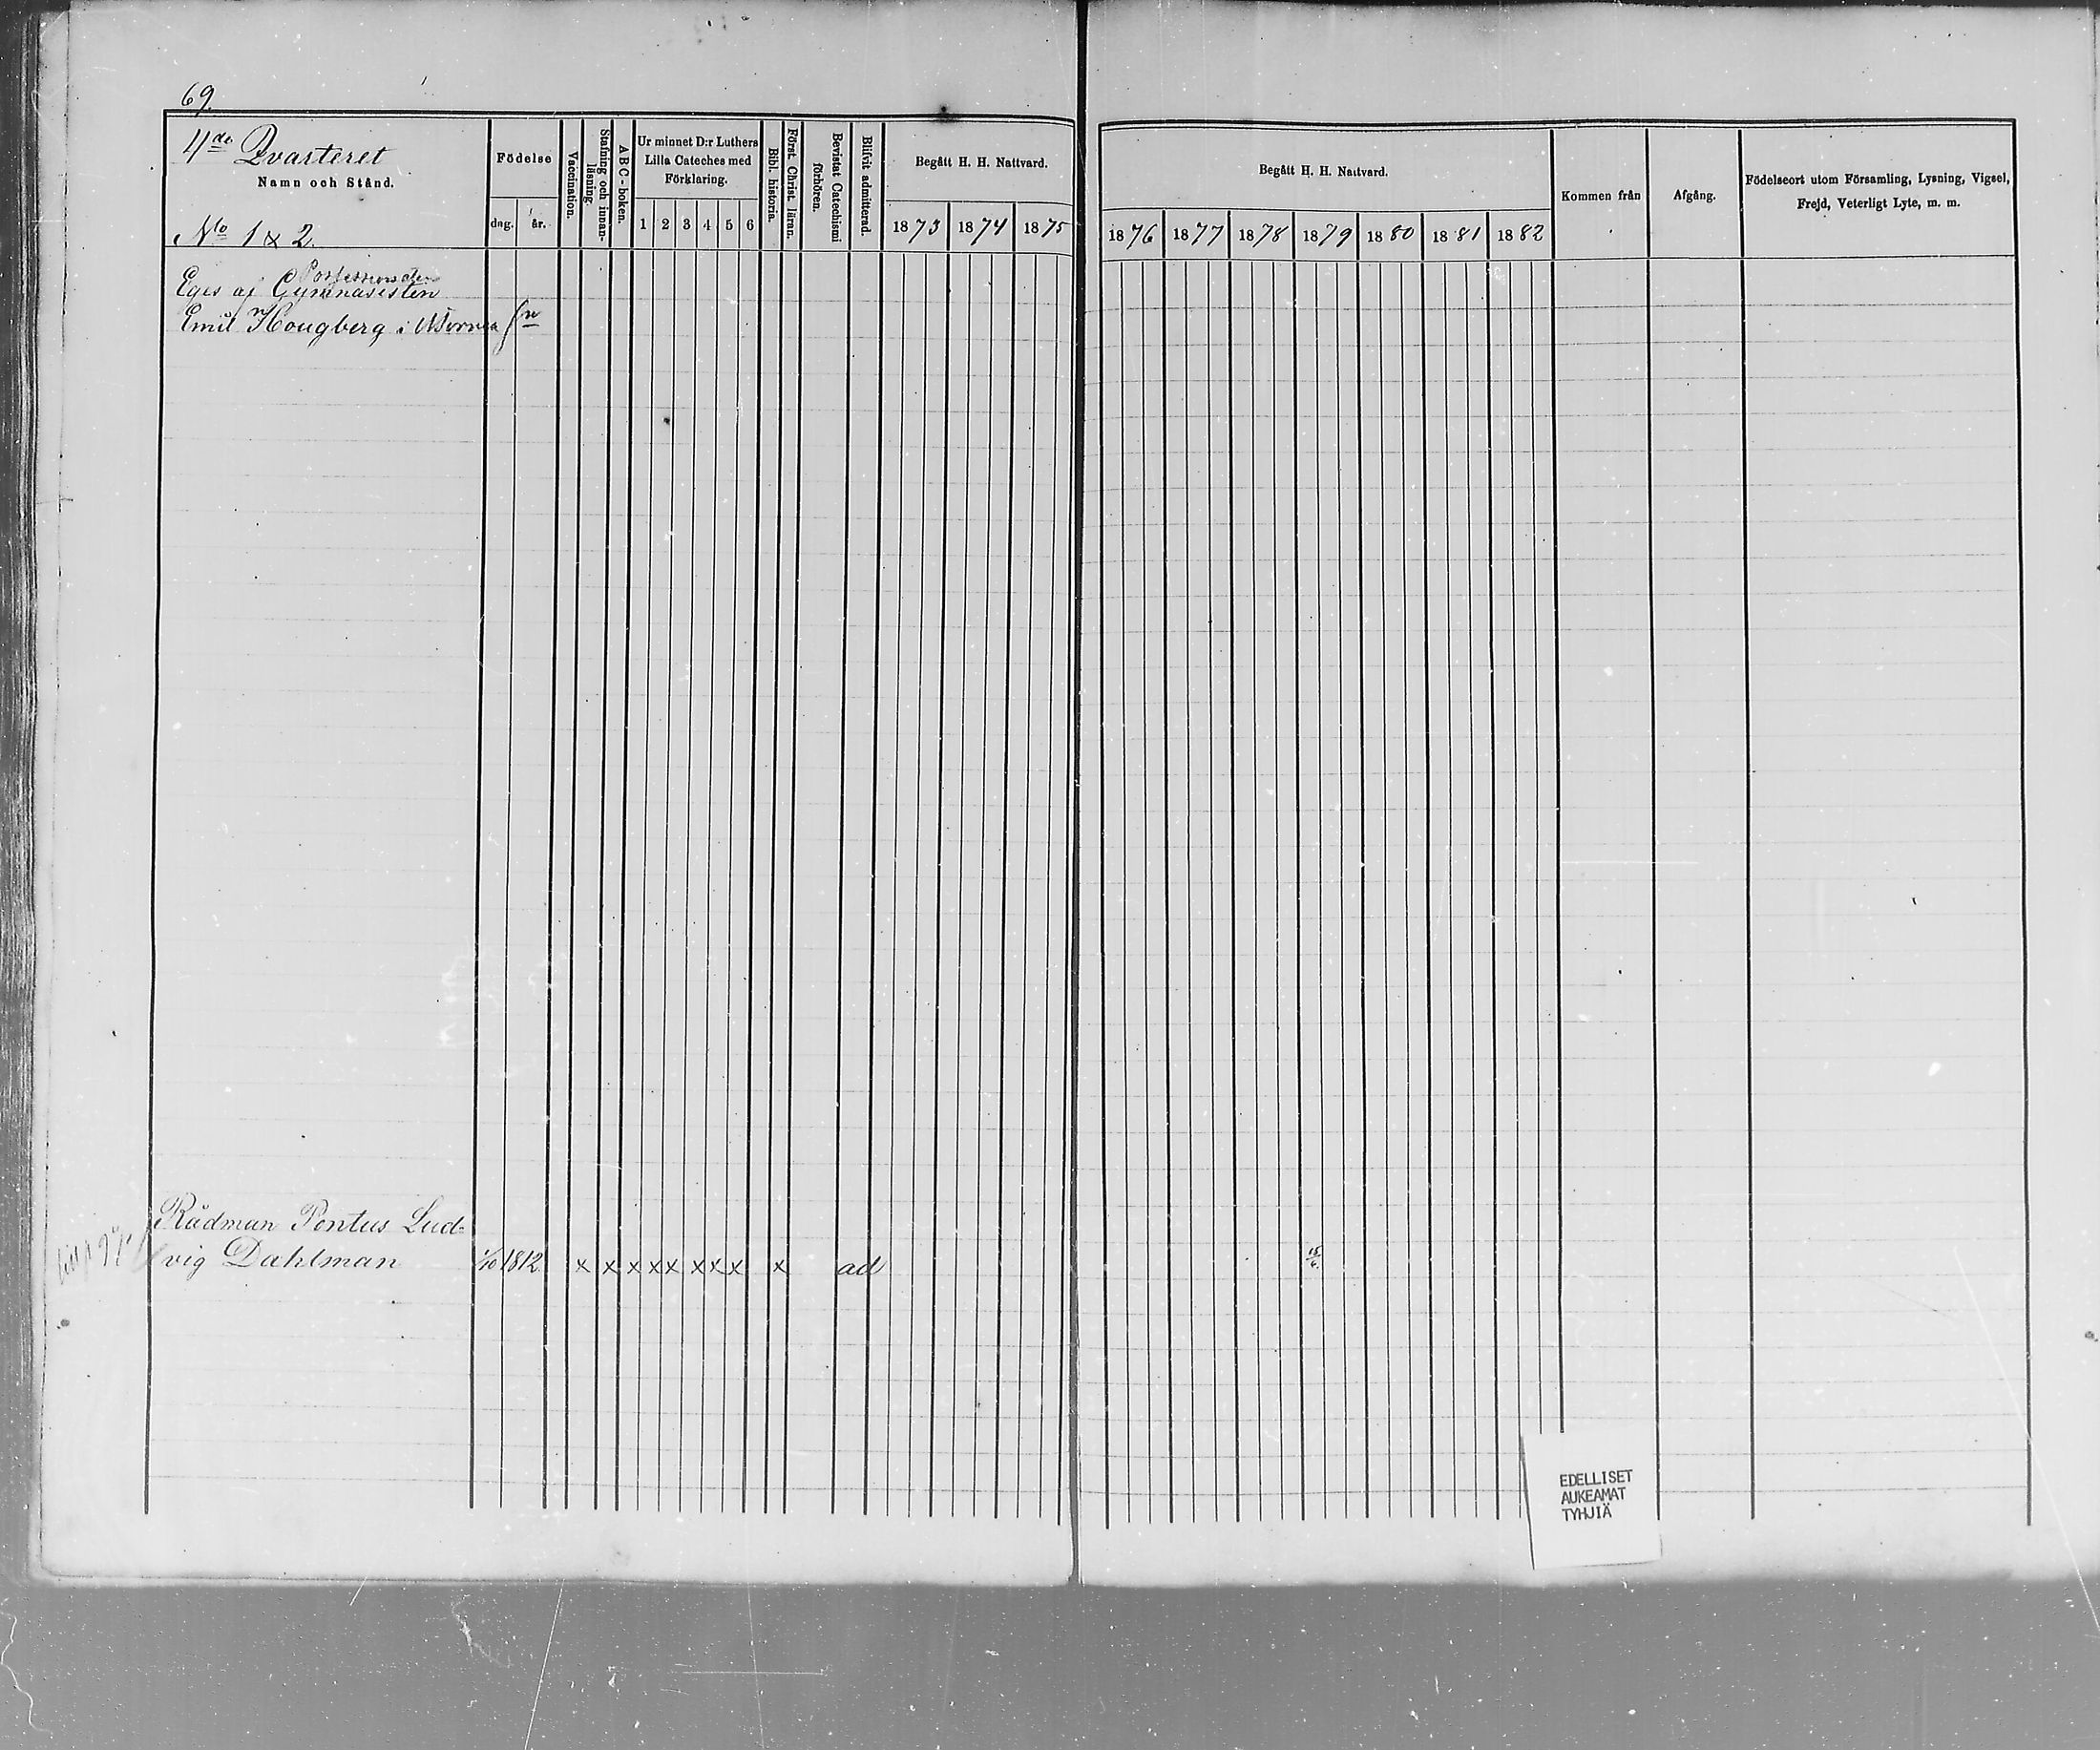 69.
4de Qvarteret
Namn och Stånd.
No 1 & 2.
Födelse
dag. år.
Vaccination.
Stafning och innan-
läsning
ABC-boken.
Ur minnet D:r Luthers
Lilla Cateches med
Förklaring.
1 2 3 4 5 6
Bibl. historia.
Först. Christ. läran.
Bevistat Catechismi
förhören.
Blifvit admitterad.
Begått H. H. Nattvard.
1873 1874 1875
Begått H. H. Nattvard.
1876 1877 1878 1879 1880 1881 1882
Kommen från
Afgång.
Födelseort utom Församling, Lysning, Vigsel,
Frejd, Veterligt Lyte, m. m.
Possessionaten
Eges af Gymnasisten
Emil Hougberg i
Rådman Pontus Lud-
vig Dahlman 1/10 1812 x x x x x x x x x ad 15/6.
EDELLISET
AUKEAMAT
TYHJIÄ